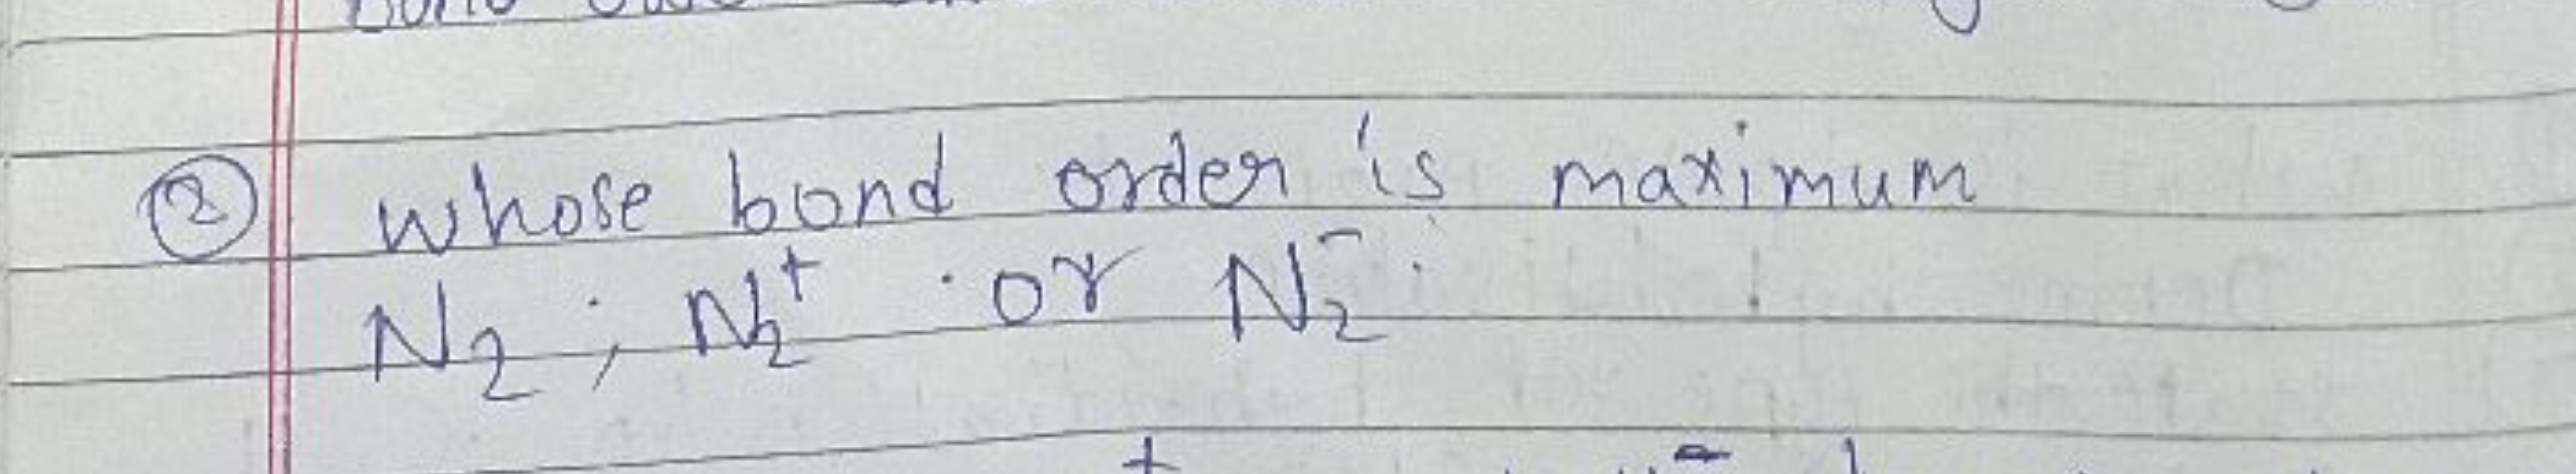 ② whose bond order is maximum
N₂ ; N₂⁺ or N₂⁻.